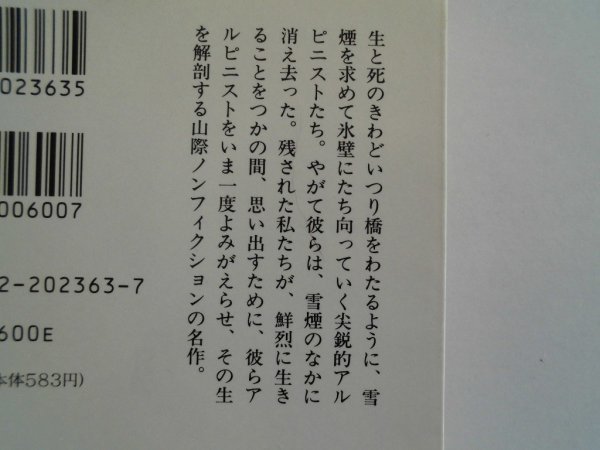 生と死のきわどいつり橋をわたるように、雪
煙を求めて氷壁にたち向っていく尖鋭的アル
ピニストたち。やがて彼らは、雪煙のなかに
消え去った。残された私たちが、鮮烈に生き
ることをつかの間、思い出すために、彼らア
ルピニストをいま一度よみがえらせ、その生
を解剖する山際ノンフィクションの名作。
023635
006007
2-202363-7
600E
本体583円)